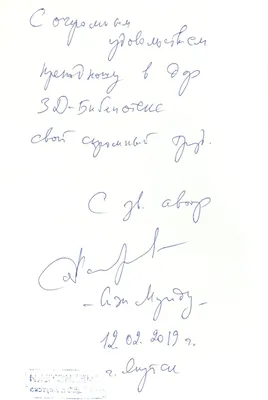 С огромным
удовольствием
преподношу в дар
3Д-Библиотеке
свой скромный труд.
С ув. автор
12.02.2019 г.
г. Якутск